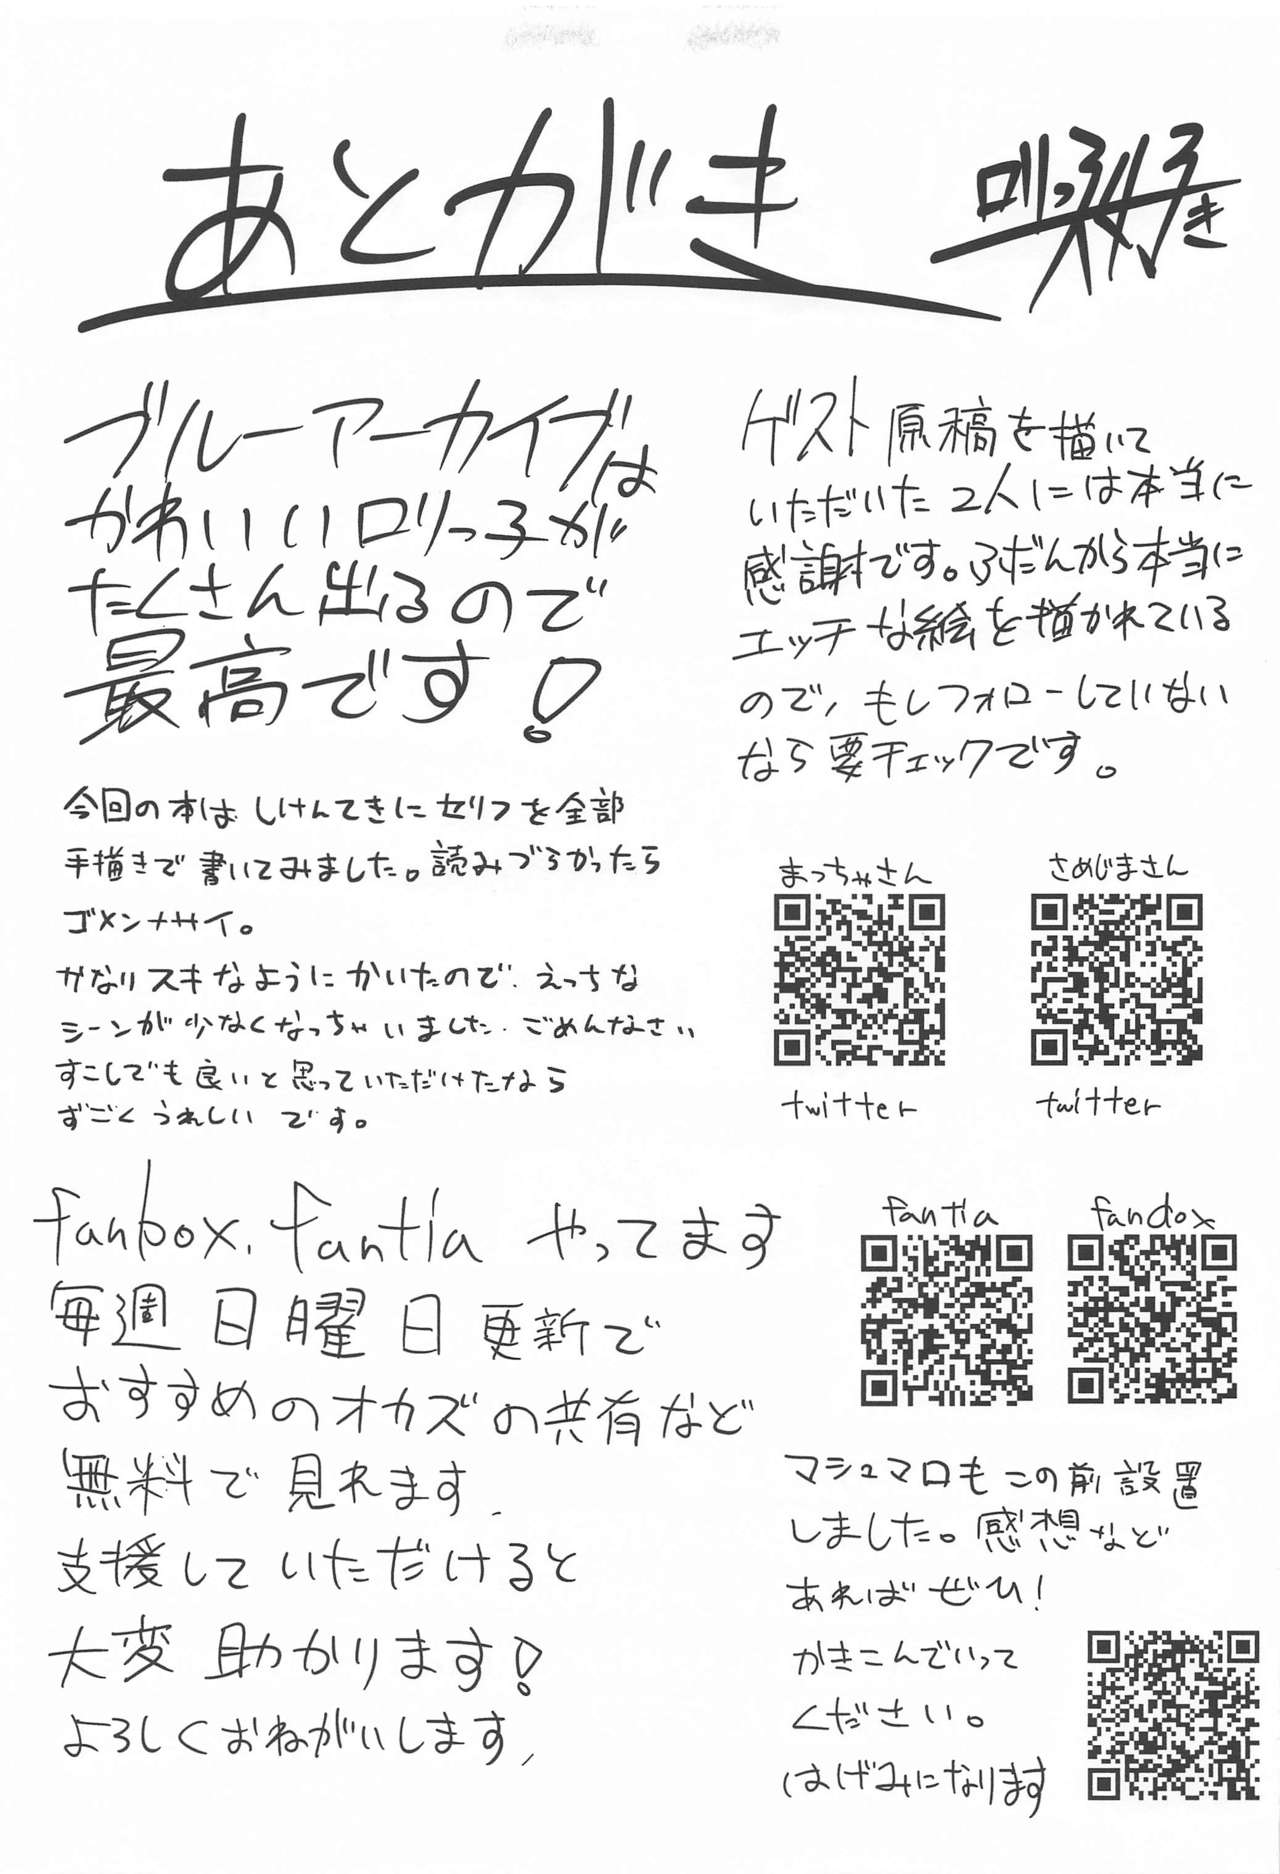 あとがき
ロリっ子大好き
ブルーアーカイブは
かわいいロリっ子が
たくさん出るので
最高です!
今回の本は しけんてきに セリフを全部
手描きで 書いてみました。読みづらかったら
ゴメンナサイ。
かなりスキなようにかいたので、えっちな
シーンが少なくなっちゃいました、ごめんなさい
すこしでも良いと思っていただけたなら
すごくうれしいです。
ゲスト原稿を描いて
いただいた2人には本当に
感謝です。ふだんから本当に
エッチな絵を描かれている
ので、もしフォローしていない
なら要チェックです。
まっちゃさん
さめじまさん
twitter
twitter
fanbox, fantia やってます
毎週日曜日更新で
おすすめのオカズの共有など
無料で見れます、
支援していただけると
大変助かります!
よろしくおねがいします、
fantia
fandox
マシュマロもこの前設置
しました。感想など
あればぜひ!
かきこんでいって
ください。
はげみになります